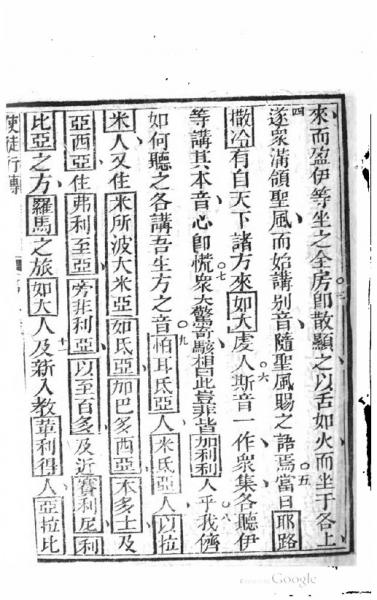 來而盈伊等坐之全房三卽散顯之以舌如火而坐于各上
四遂衆滿領聖風而始講別音隨聖風賜之語焉五當日耶路
撒冷有自天下諸方來如大虔人六斯音一作衆集各聽伊
等講其本音心卽慌七衆大驚竒駭相曰此豈非皆加利利人乎八我儕
如何聽之各講吾生方之音九怕耳氏亞人米氏亞人以拉
米人又住米所波大米亞如氏亞加巴多西亞本多士及
亞西亞住弗利至亞旁非利亞以至百多及近賽利尼利
比亞之方羅馬之旅如大人及新入教十一革利得人亞拉比
使徒行傳
Google